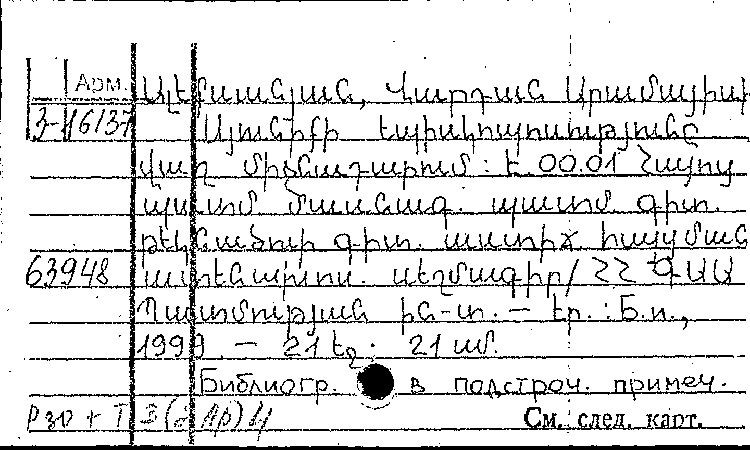 Арм. Ալեքսանյան, Վարդան Արամայիսի
3-16137 Սյունիքի եպիսկոպոսությունը
վաղ միջնադարում : Է. 00.01 Հայոց
պատմ. մասնագ. պատմ. գիտ.
թեկնածուի գիտ. աստիճ. հայցման
63948 ատենախոս. սեղմագիր / ՀՀ ԳԱԱ
Պատմության ին-տ. — Եր. : Б.и.,
1999. — 21 էջ. 21 սմ.
Библиогр. в подстроч. примеч.
См. след. карт.